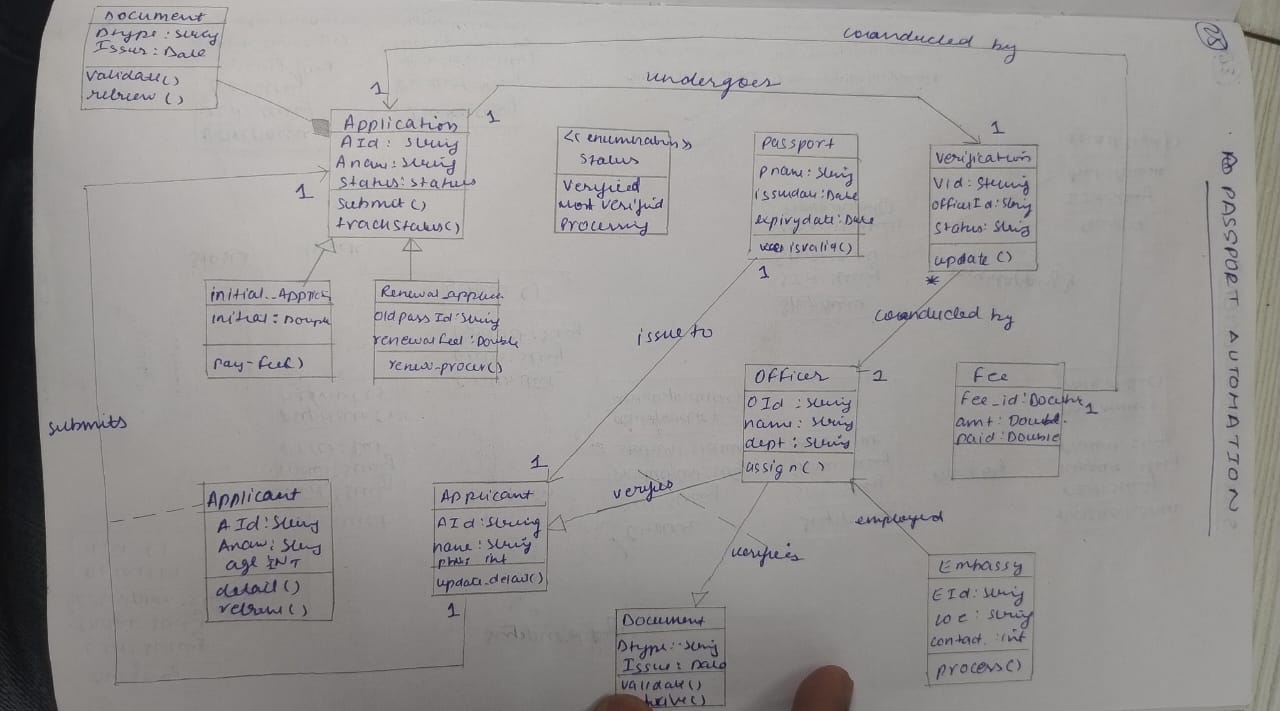 Document
Dtype : String
Issue : Date
validate()
retrieve ()
coanducted by
25
undergoes
1
1
1
Application
AId : String
Aname : String
Status : status
Submit ()
trackstatus()
1
<<enumeration>>
Status
Verified
not verified
Processing
Passport
Pname : String
issuedate : Date
expirydate : Date
isvalid()
1
Verification
Vid : String
officerId : String
Status : String
update ()
*
PASSPORT AUTOMATION
initial_Applica
initial : Double
pay-fee()
Renewal_applica
Oldpass Id : String
renewalfee : Double
renew-process()
issue to
coanducted by
Officer
OId : String
name : String
dept : String
assign()
1
Fee
Fee_id : Docum
amt : Double
paid : Double
1
submits
1
verifies
Applicant
AId : String
Aname : String
age INT
detail()
retrieve()
Applicant
AId : String
name : String
int
update_detail()
1
verifies
employed
Document
Dtype : String
Issue : Date
validate()
Embassy
EId : String
loc : String
contact : int
process()